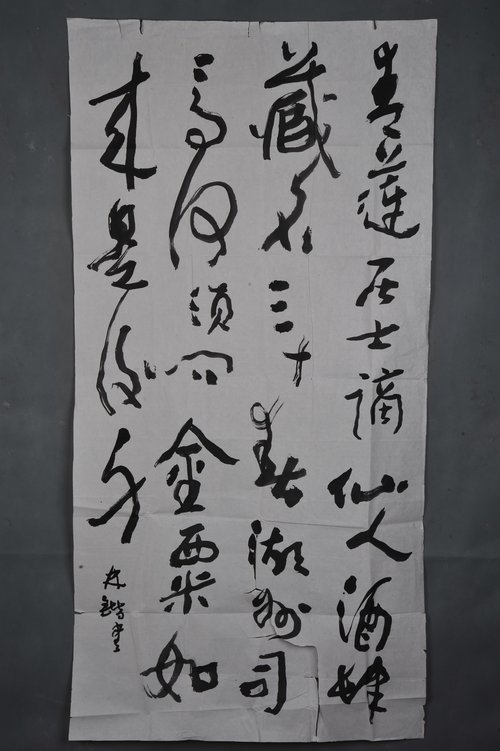 青蓮居士謫仙人酒肆
藏名三十春湖州司
馬何須問金粟如
来是後身
書